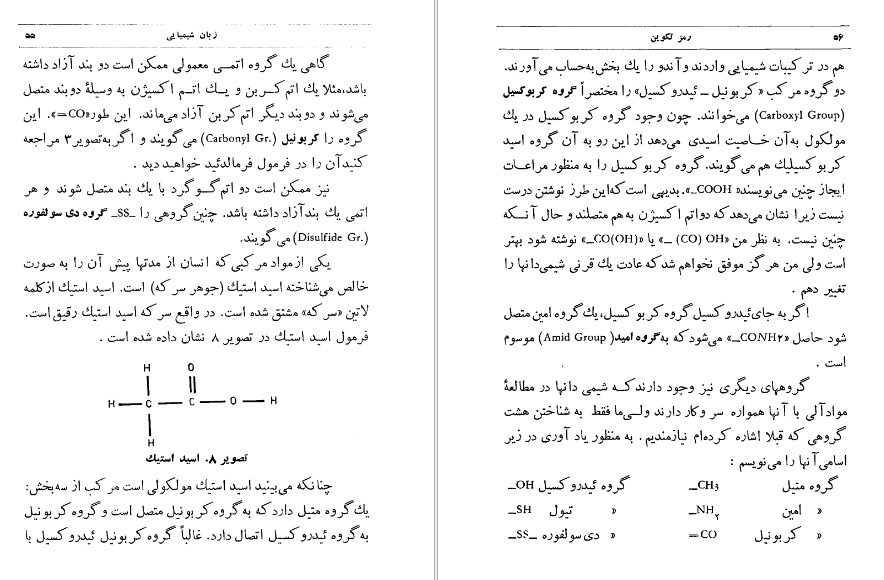 زبان شیمیایی ۵۵
گاهی یك گروه اتمـی معمولی ممکن است دو بند آزاد داشته
باشد،مثلا یك اتم کـربن و یـك اتـم اکسیژن به وسیلهٔ دوبند متصل
می‌شوند و دوبند دیگر اتم کربن آزاد می‌ماند. این طور«CO=». این
گروه را کربونیل (.Carbonyl Gr) می‌گویند و اگر به‌تصویر۳ مراجعه
کنیدآن را در فرمول فرمالدئید خواهید دید .
نیز ممکن است دو اتم گـوگرد با یك بند متصل شوند و هر
اتمی یك بندآزاد داشته باشد. چنین گروهی را _SS_ گروه دی سولفوره
(.Disulfide Gr) می‌گویند.
یکی از مواد مرکبی که انسان از مدتها پیش آن را به صورت
خالص می‌شناخته اسید استیك (جوهر سرکه) است. اسید استیك ازکلمه
لاتین «سرکه» مشتق شده است. در واقع سرکه اسید استیك رقیق است.
فرمول اسید استیك در تصویر ۸ نشان داده شده است .
H O
H — C — C — O — H
H
تصویر ۸. اسید استیك
چنانکه می‌بینید اسید استیك مولکولی است مرکب از سه‌بخش:
یك گروه متیل دارد که به گروه کربونیل متصل است و گروه کربونیل
به گروه ئیدروکسیل اتصال دارد. غالباً گروه کربونیل ئیدروکسیل با
رمز تکوین ۵۶
هم در ترکیبات شیمیایی واردند و آندو را یك بخش به‌حساب می‌آورند.
دو گروه مرکب «کربونیل ـ ئیدروکسیل» را مختصراً گروه کربوکسیل
(Carboxyl Group) می‌خوانند. چون وجود گروه کربوکسیل در یك
مولکول به‌آن خـاصیت اسیدی می‌دهد از این رو به آن گروه اسید
کربوکسیلیك هم می‌گویند. گروه کربوکسیل را به منظور مراعـات
ایجاز چنین می‌نویسند« COOH_». بدیهی است که‌این طرز نوشتن درست
نیست زیرا نشان می‌دهد که دواتم اکسیژن به‌هم متصلند و حال آنـکه
چنین نیست. به نظر من «CO) OH) _» یا «CO(OH)_» نوشته شود بهتر
است ولی من هرگز موفق نخواهم شدکه عادت یك قرنی شیمی‌دانها را
تغییر دهم .
اگر به جای ئیدروکسیل گروه کربوکسیل، یك گروه امین متصل
شود حاصل «CONH۲_» می‌شود که به‌گروه امید( Amid Group) موسوم
است .
گروههای دیگری نیز وجود دارندکـه شیمی دانها در مطالعهٔ
موادآلی با آنها همواره سر وکار دارند ولـی‌ما فقط به شناختن هشت
گروهی که قبلا اشاره کرده‌ام نیازمندیم. به منظور یاد آوری در زیر
اسامی‌آنها را می‌نویسم :
گروه متیل CH۳_ گروه ئیدروکسیل OH_
» امین NH۲_ » تیول SH_
» کربونیل CO= » دی‌سولفوره _SS_